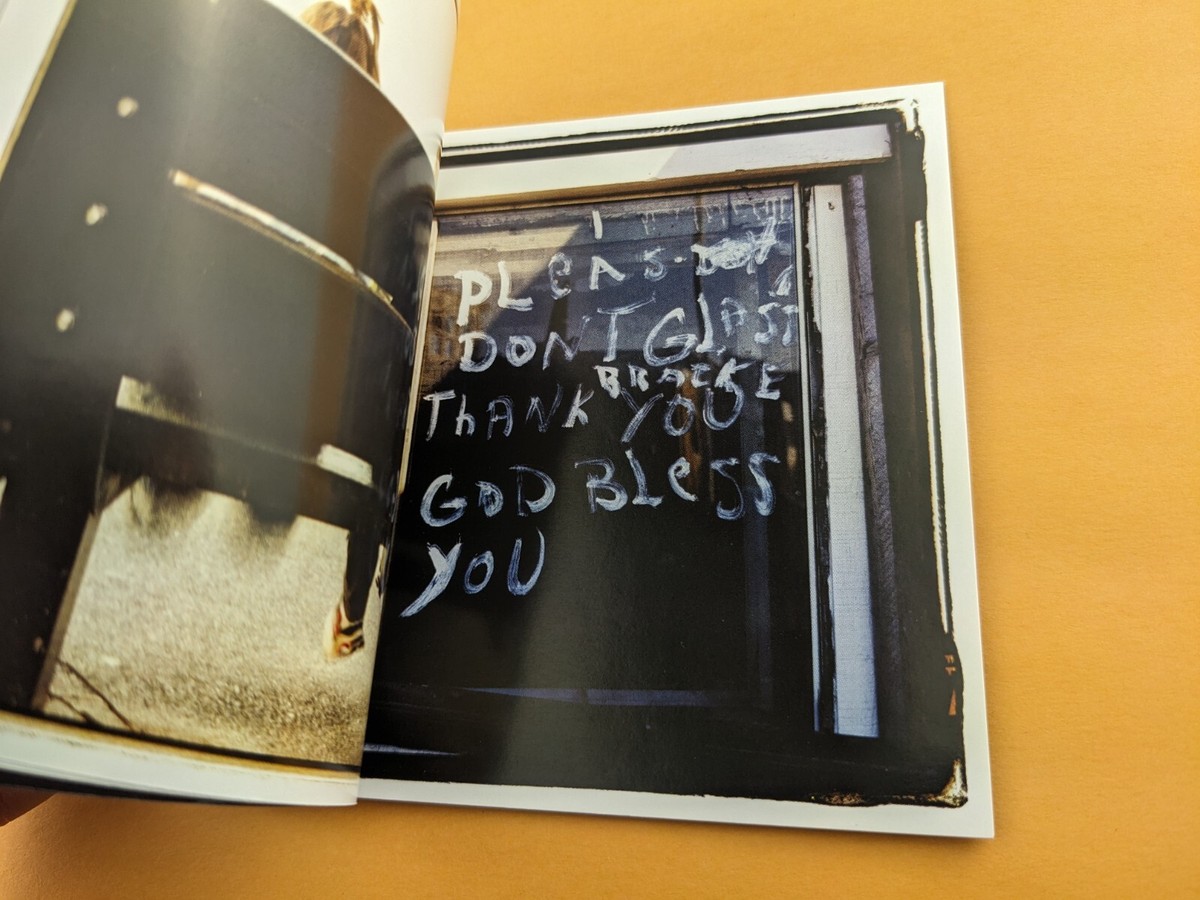 PLEAS.
DONT GLAST
BRACKE
THANK YOU
GOD BLess
YOU